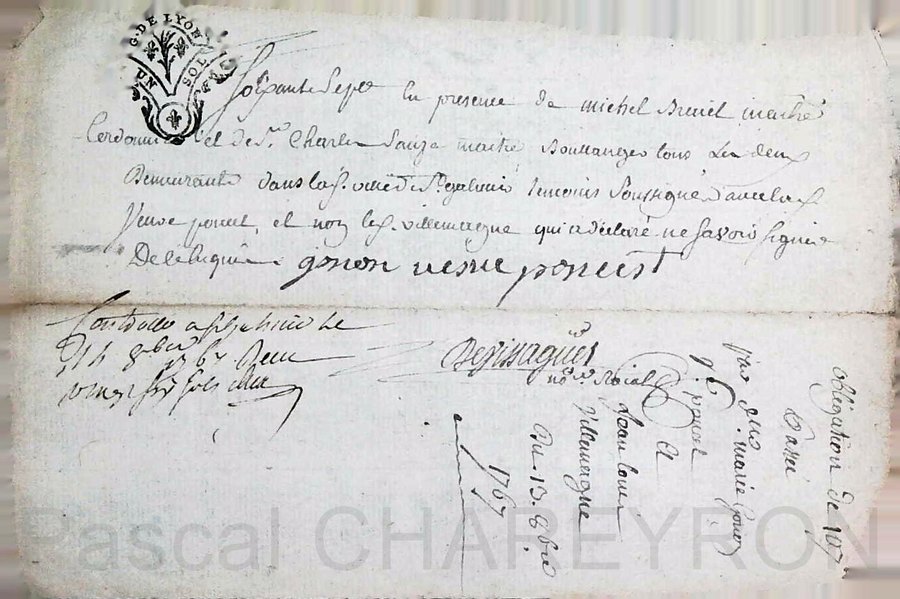 G. DE LYON
UN SOL
Soixante Sept En presence de michel Breuil maitre
Cordonnier et de Sr. Charles maitre Boullanger tous Les deux
Demeurants dans la ville de St galmier temoins Soussignés avec la
Veuve poncet, et non les villemagne qui a declaré ne Savoir signer
De ce Enquis
gonon veuve poncet
Controllé a St galmier Le
8bre 1767 Reçu
sols
Desissagues
no.re Roial
obligation de 197
Passé
par
marie gonon
Ve. poncet
A
Jean louis
Villemagne
Du 13. 8bre
1767
Pascal CHAREYRON